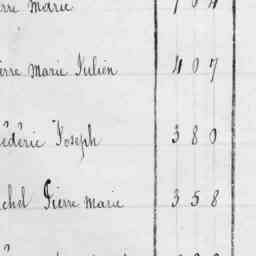 erre Marie 704
ierre Marie Julien 407
rédéric Joseph 380
chel Pierre Marie 358